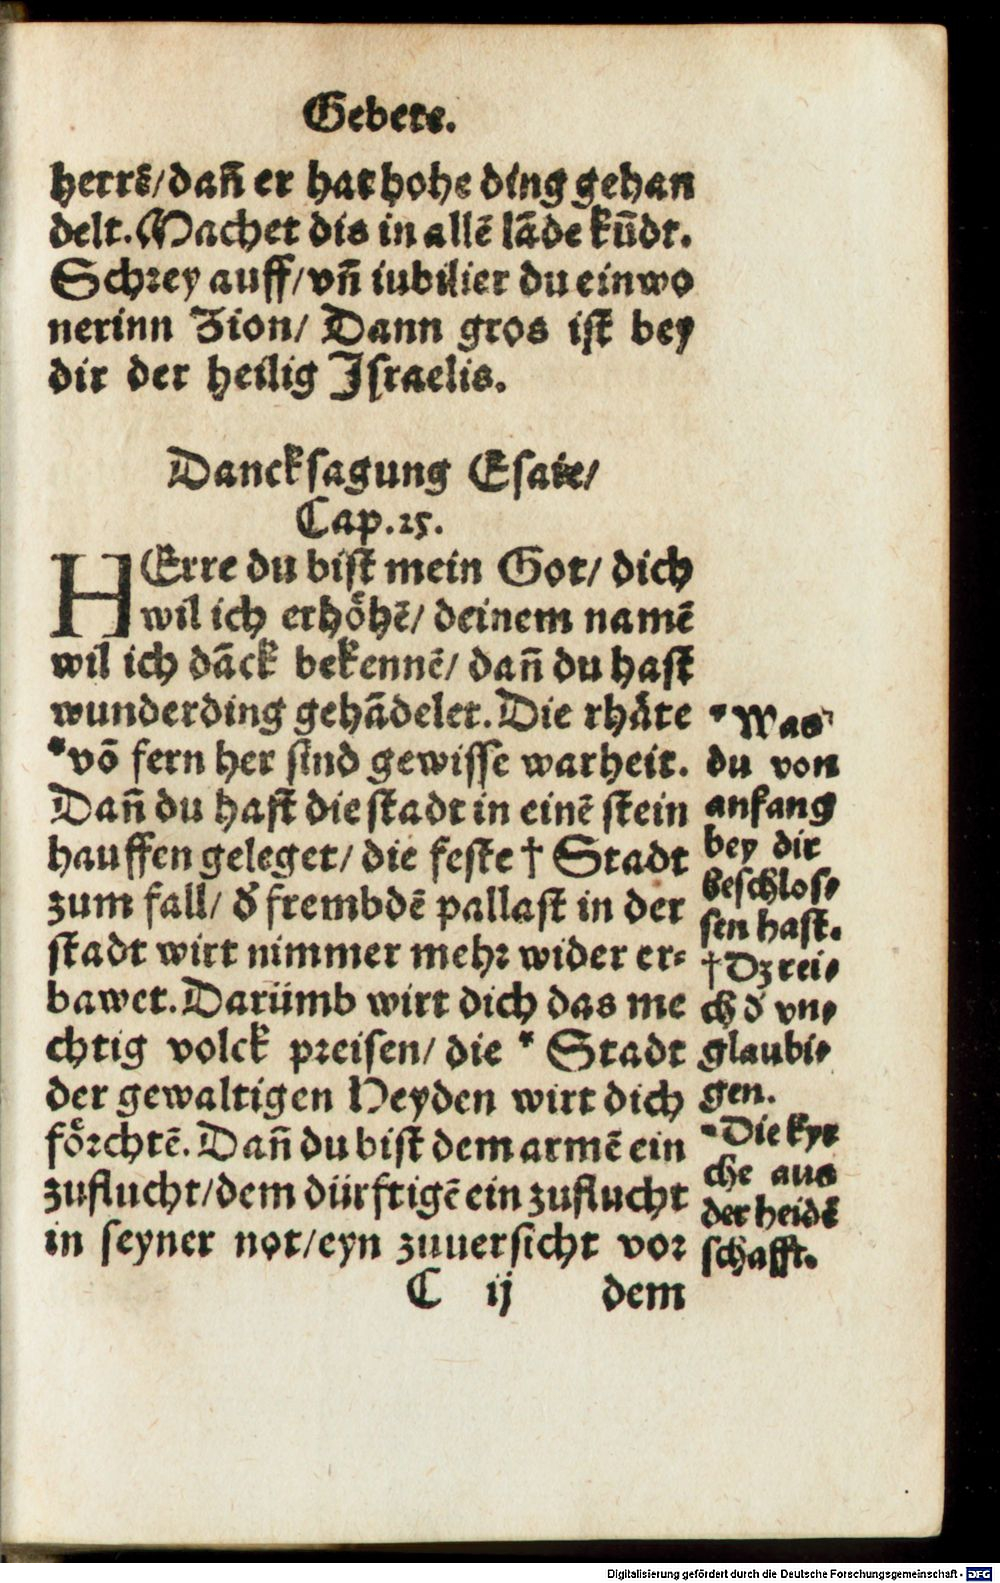 Gebete.
herrē/dañ er hat hohe ding gehan
delt. Machet dis in allē lāde kūdt.
Schrey auff/vñ iubilier du einwo
nerinn Zion/ Dann gros ist bey
dir der heilig Israelis.
Dancksagung Esaie/
Cap.25.
HErre du bist mein Got/ dich
wil ich erhöhē/ deinem namē
wil ich dāck bekennē/ dañ du hast
wunderding gehādelet. Die rhäte
*vō fern her sind gewisse warheit.
Dañ du hast die stadt in einē stein
hauffen geleget/ die feste † Stadt
zum fall/ d̄ frembdē pallast in der
stadt wirt nimmer mehr wider er-
bawet. Darümb wirt dich das me
chtig volck preisen/ die * Stadt
der gewaltigen Heyden wirt dich
förchtē. Dañ du bist dem armē ein
zuflucht/dem dürftigē ein zuflucht
in seyner not/eyn zuuersicht vor
C ij dem
*Was
du von
anfang
bey dir
beschlos-
sen hast.
†Dz rei-
ch d̄ vn-
glaubi-
gen.
*Die kyr
che aus
der heidē
schafft.
Digitalisierung gefördert durch die Deutsche Forschungsgemeinschaft - DFG